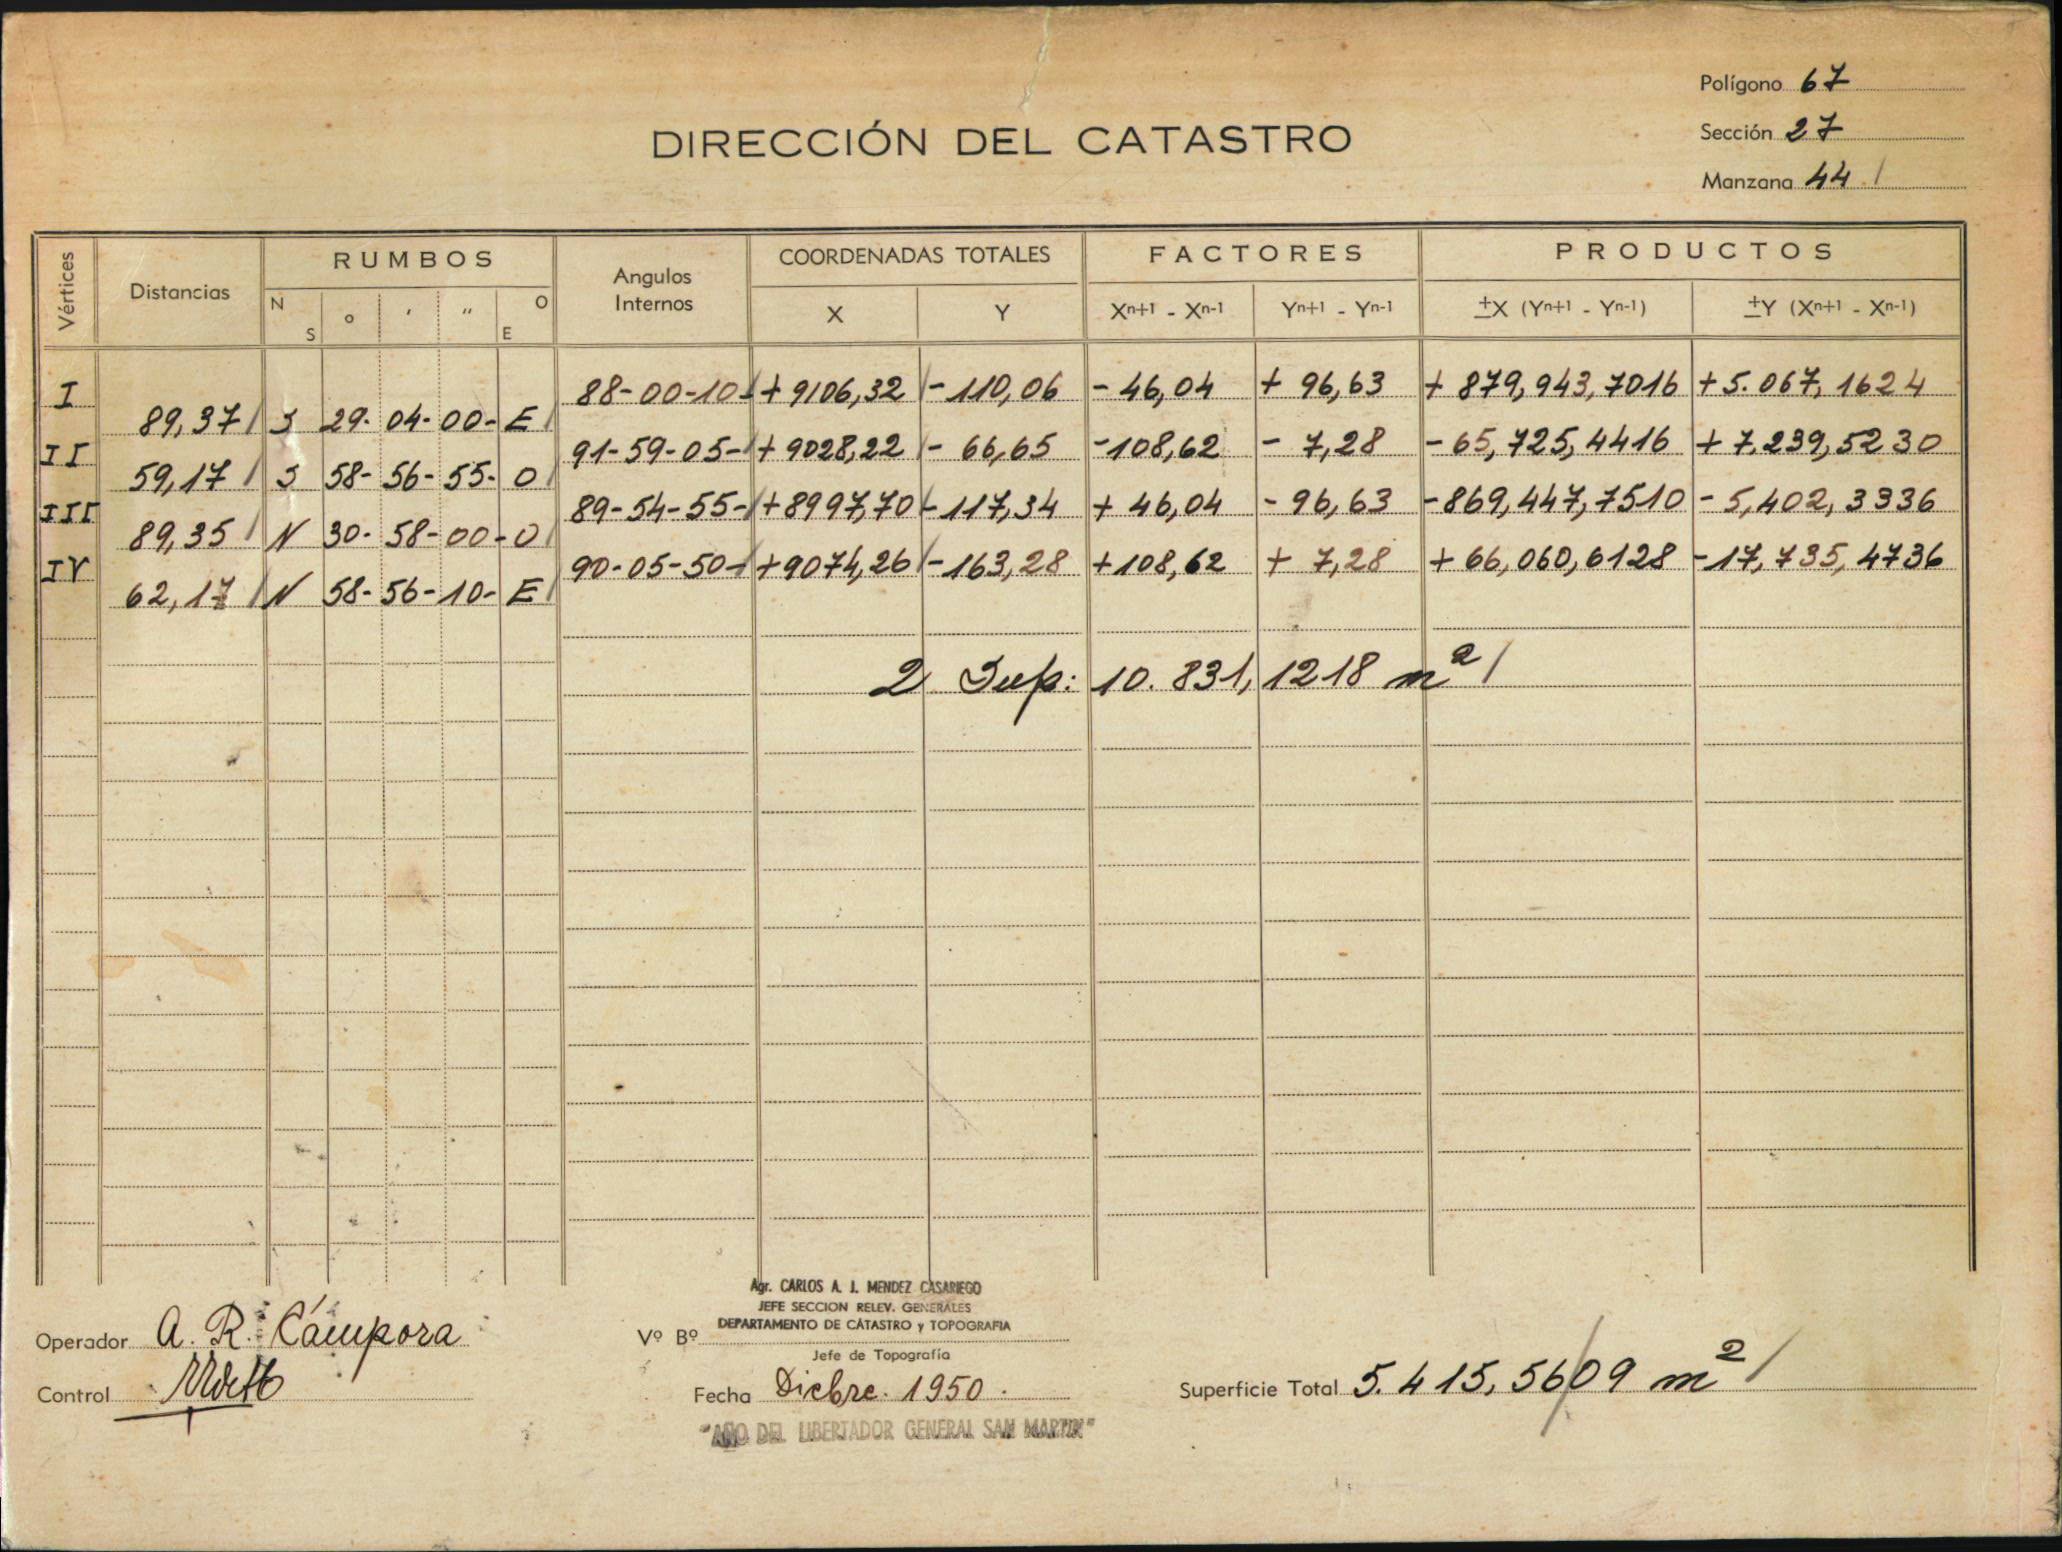 Polígono 67
DIRECCIÓN DEL CATASTRO
Sección 27
Manzana 44
Vértices Distancias RUMBOS Angulos Internos COORDENADAS TOTALES FACTORES PRODUCTOS
N S ° ' " E O X Y Xn+1 - Xn-1 Yn+1 - Yn-1 ±X (Yn+1 - Yn-1) ±Y (Xn+1 - Xn-1)
I 88-00-10- +9106,32 -110,06 -46,04 + 96,63 + 879,943,7016 +5.067,1624
89,37 S 29-04-00- E
II 91-59-05- +9028,22 - 66,65 -108,62 - 7,28 -65,725,4416 +7.239,5230
59,17 S 58-56-55- O
III 89-54-55- +8997,70 -117,34 + 46,04 - 96,63 -869,447,7510 -5,402,3336
89,35 N 30-58-00- O
IV 90-05-50- +9074,26 -163,28 +108,62 + 7,28 + 66,060,6128 -17,735,4736
62,17 N 58-56-10- E
2 Sup: 10.831,1218 m²
Agr. CARLOS A. J. MENDEZ CASARIEGO
JEFE SECCION RELEV. GENERALES
DEPARTAMENTO DE CATASTRO y TOPOGRAFIA
Operador A. R. Cámpora Vº Bº
Jefe de Topografía
Control Fecha Dicbre. 1950. Superficie Total 5.415,5609 m²
"AÑO DEL LIBERTADOR GENERAL SAN MARTIN"